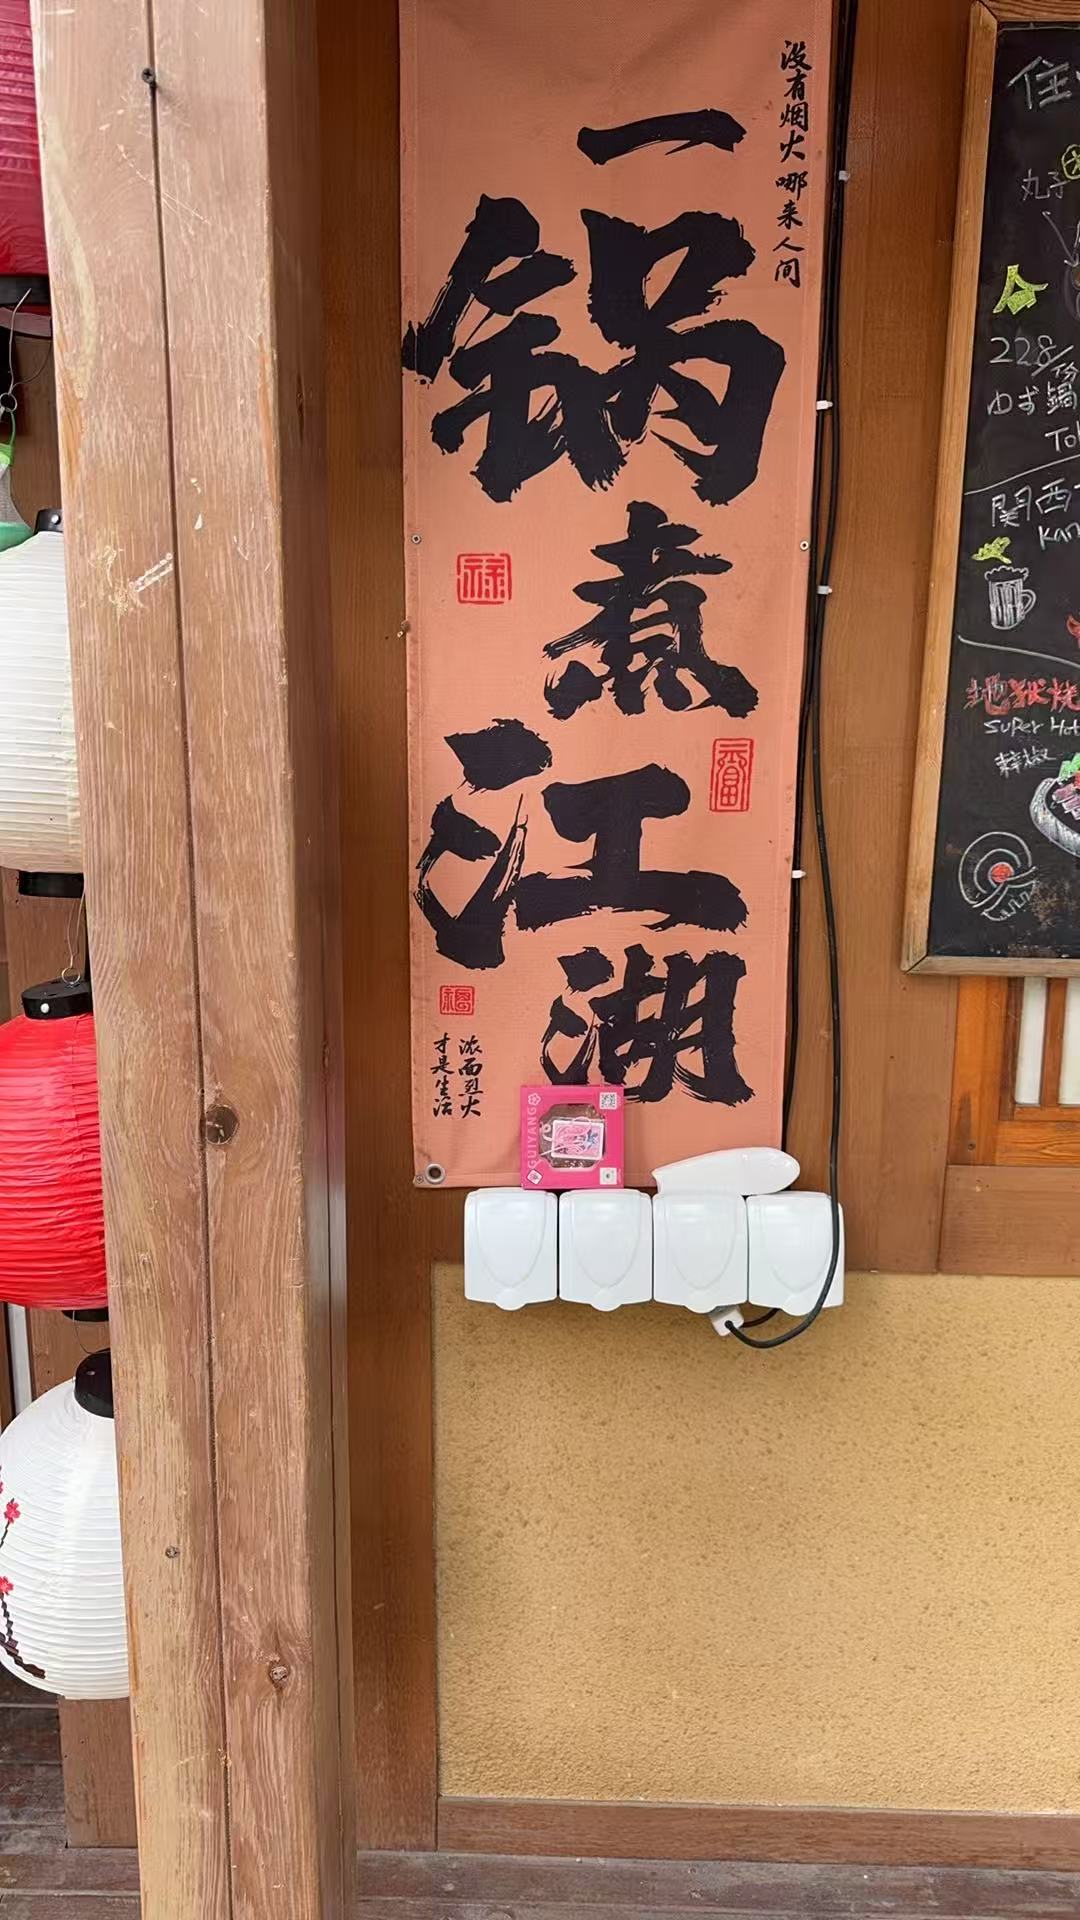 没有烟火哪来人间
一锅煮江湖
禄
富
福
浓而烈火
才是生活
GUIYANG
住
丸子
228/份
ゆず鍋
関西
地獄焼
Super Hot
辣椒